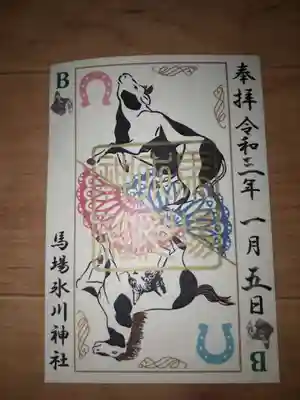 奉拝 令和三年 一月五日
B
馬場氷川神社
B